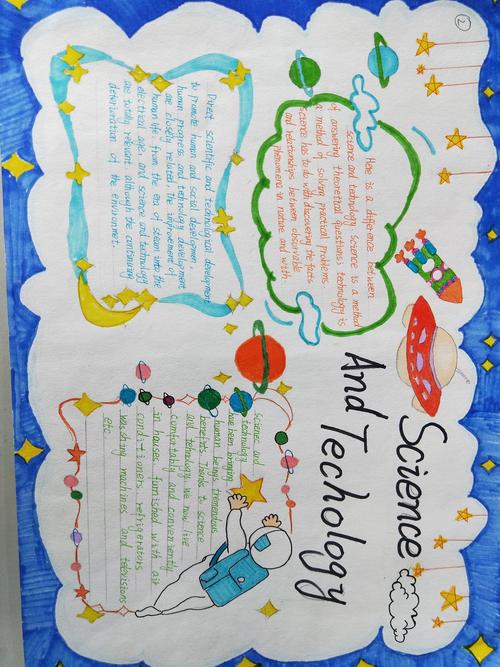 ②
Science
And Techology
Here is a difference between
science and technology. Science is a method
of answering theoretical questions; technology is
a method of solving practical problems.
Science has to do with discovering the facts
and relationships between observable
phenomena in nature and with
Direct scientific and technological development
to promote human and social developmen.
human progress and technology development
are closely related. The improvement of
human life from the end of steam into the
electrical age, and science and technology
are totally relevant, although the continuing
deterioration of the environment.
Science and
technology
have been bringing
human beings tremendous
benefits. Thanks to science
and technology we now live
comfortably and conveniently
in houses furnished with air
conditioners, refrigerators
washing machines and televisions
etc